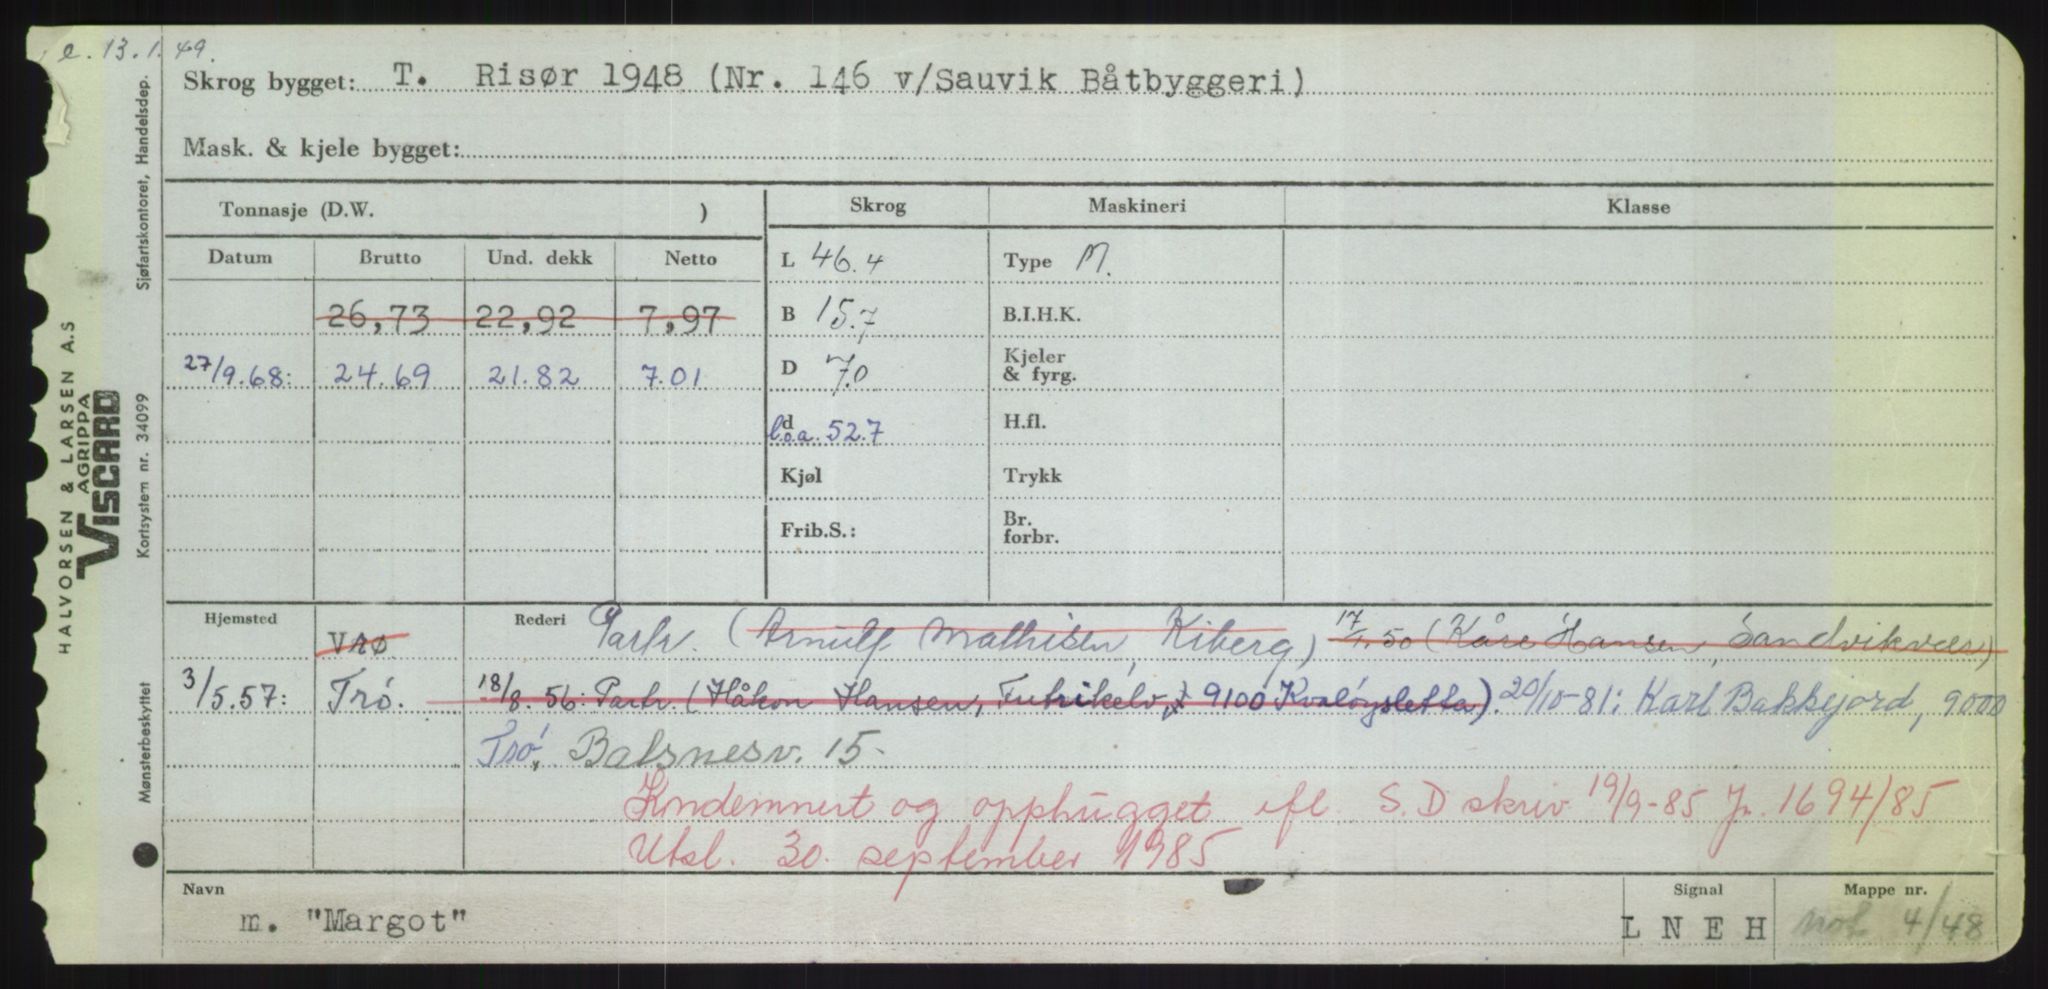 e. 13.1.49.
Skrog bygget: T. Risør 1948 (Nr. 146 v/Sauvik Båtbyggeri)
Mask. & kjele bygget:
Tonnasje (D.W. )
Skrog
Maskineri
Klasse
Datum Brutto Und. dekk Netto
L 46.4
Type M.
26,73 22,92 7,97
B 15.7
B.I.H.K.
27/9.68: 24.69 21.82 7.01
D 7.0
Kjeler
& fyrg.
d
l.o.a. 52.7
H.fl.
Kjøl
Trykk
Frib.S.:
Br.
forbr.
Hjemsted Vrø
Rederi Partr. (Arnulf Mathisen, Kiberg) 17/1.50 (Kåre Hansen, Sandvikvær)
3/5.57: Trø. 18/8.56: Partr. (Håkon Hansen, Futrikelv, 9100 Kvaløysletta). 20/10-81: Karl Bakkejord, 9000
Trø, Balsnesv. 15.
Kondemnert og opphugget ifl. S.D skriv 19/9-85 Jr. 1694/85
Utsl. 30. september 1985
Navn
m. "Margot"
Signal
L N E H
Mappe nr.
not 4/48
HALVORSEN & LARSEN A.S
AGRIPPA
VISCARD
Sjøfartskontoret, Handelsdep.
Kortsystem nr. 34099
Mønsterbeskyttet